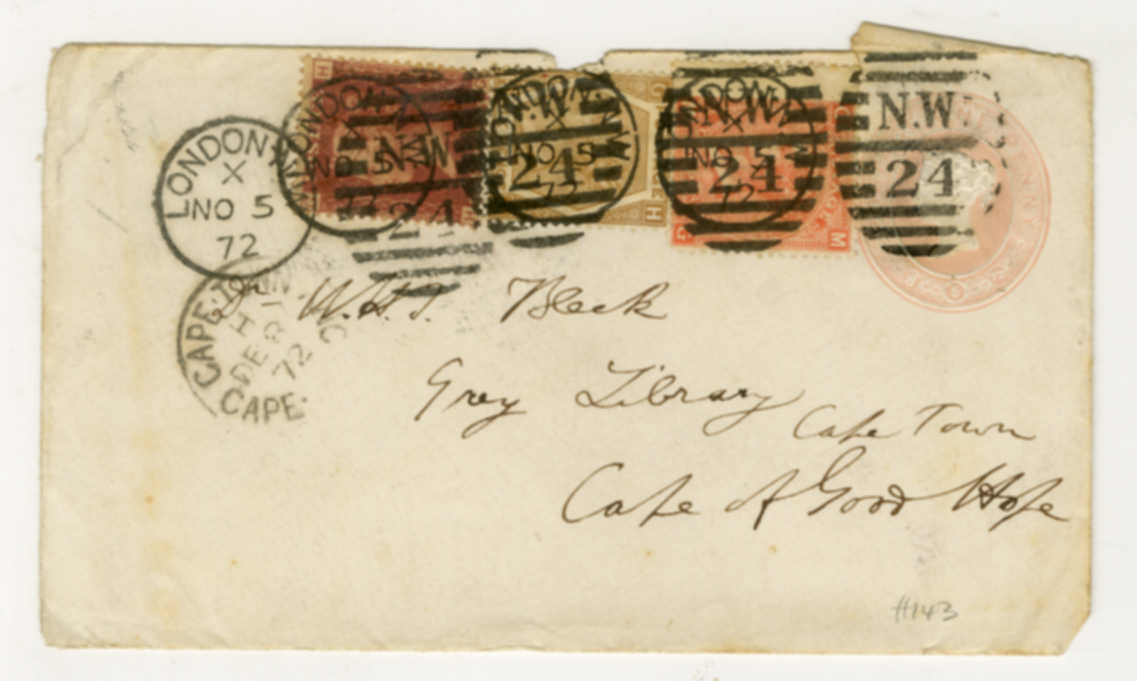 LONDON
X
NO 5
72
LONDON N.W
X
NO 5
72
N.W
24
LONDON N.W
X
NO 5
72
N.W
24
LONDON N.W
X
NO 5
72
N.W
24
N.W
24
H
H
G
M
PENNY
CAPE TOWN
H
DE
72
CAPE
W.H.I. Bleek
Grey Library
Cape Town
Cape of Good Hope
#143